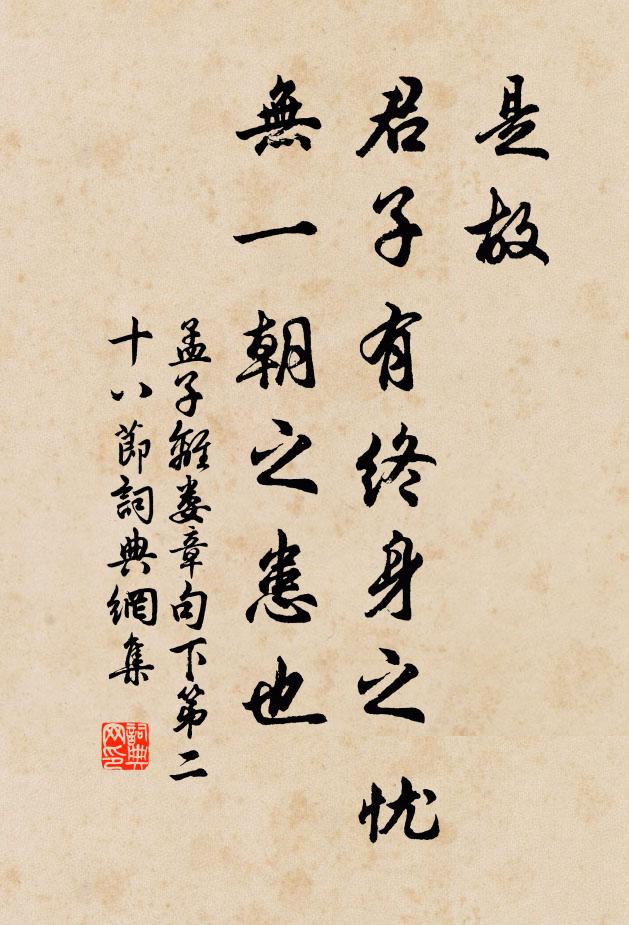 是故
君子有終身之忧
無一朝之患也
孟子離婁章句下第二
十八節詞典網集
詞典网印